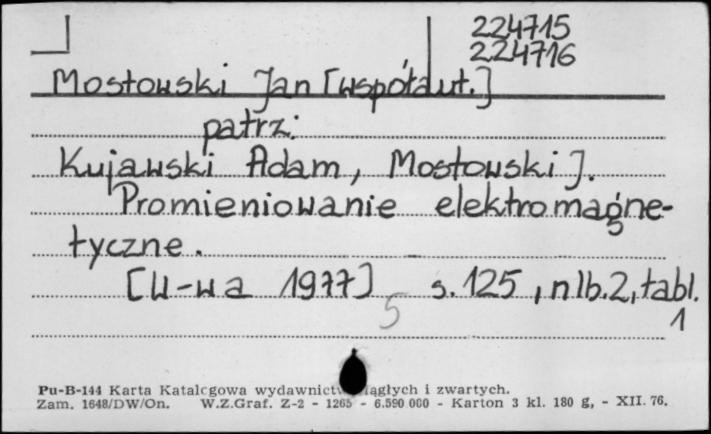 224715
224716
Mostowski Jan [współaut.]
patrz:
Kujawski Adam, Mostowski J.
Promieniowanie elektromagne-
tyczne.
[W-wa 1977] s. 125, nlb. 2, tabl.
1
5
Pu-B-144 Karta Katalogowa wydawnictw ciągłych i zwartych.
Zam. 1648/DW/On. W.Z.Graf. Z-2 - 1265 - 6.590 000 - Karton 3 kl. 180 g, - XII. 76.